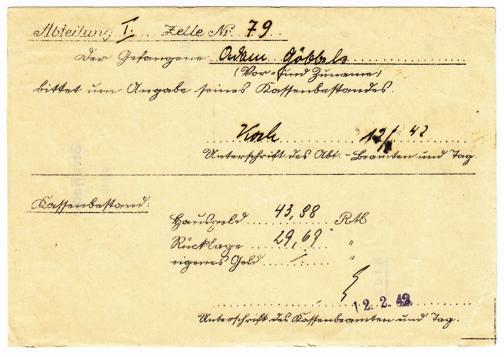 Abteilung I. Zelle Nr. 79
Der Gefangene Adam Göbbels
(Vor- und Zuname)
bittet um Angabe seines Kassenbestandes.
12/ 42
Unterschrift des Abt.-Beamten und Tag.
Kassenbestand:
Hausgeld 43,98 RM
Rücklage 29,69 "
eigenes Geld / "
12. 2. 42
Unterschrift des Kassenbeamten und Tag.